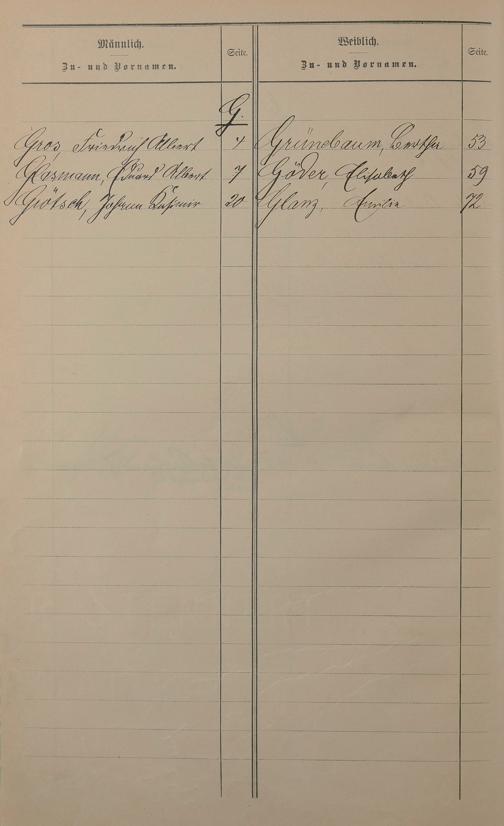 Männlich.
Zu- und Vornamen.
Seite.
Weiblich.
Zu- und Vornamen.
Seite.
G.
Gros, Friedrich Albert 4
Glasmann, Eduard Albert 7
Götsch, Johann Kasimir 20
Grünebaum, Bertha 53
Göder, Elisabeth 59
Glanz, Emilie 72